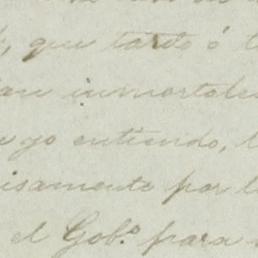 , que tardo ó t
an inmortale
yo entiendo, l
isamente por l
el Gob.º para